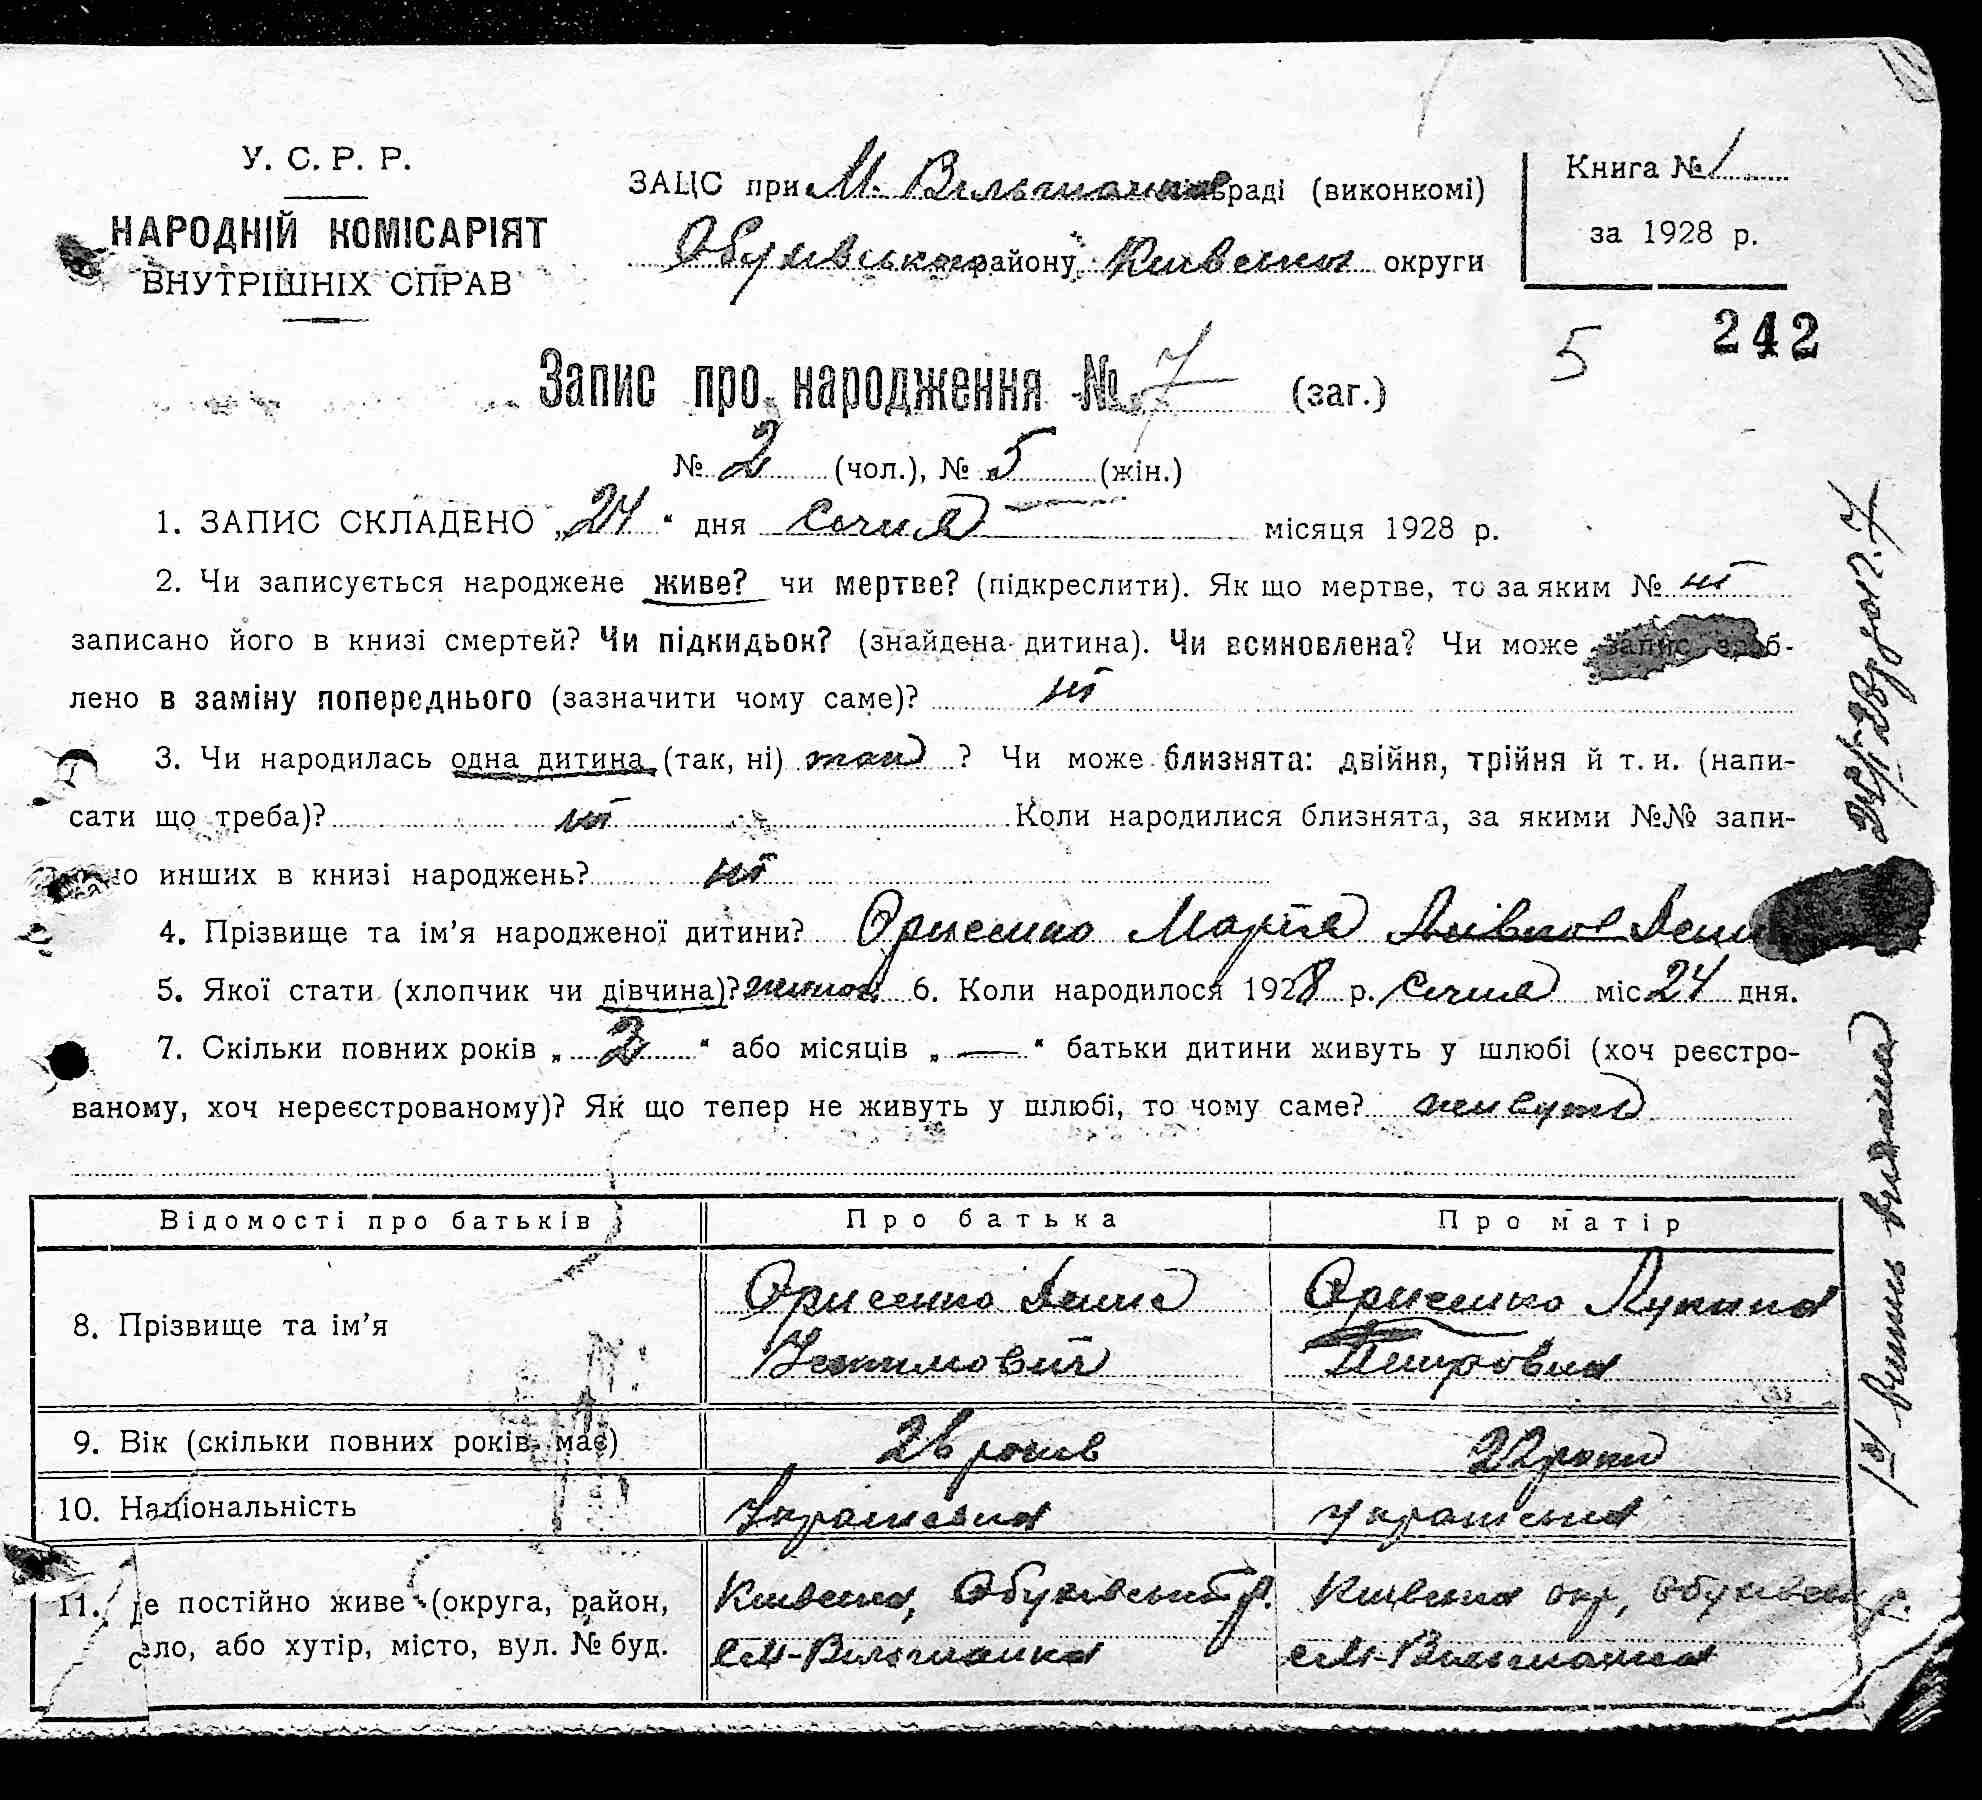 У. С. Р. Р.
НАРОДНІЙ КОМІСАРІЯТ
ВНУТРІШНІХ СПРАВ
ЗАЦС при М. Вільшанка раді (виконкомі)
Обухівського району Київська округи
Книга № 1
за 1928 р.
5 242
Запис про народження № 7 (заг.)
№ 2 (чол.), № 5 (жін.)
1. ЗАПИС СКЛАДЕНО „24“ дня Січня місяця 1928 р.
2. Чи записується народжене живе? чи мертве? (підкреслити). Як що мертве, то за яким № ні
записано його в книзі смертей? Чи підкидьок? (знайдена дитина). Чи всиновлена? Чи може запис зроб-
лено в заміну попереднього (зазначити чому саме)? ні
3. Чи народилась одна дитина (так, ні) так ? Чи може близнята: двійня, трійня й т. и. (напи-
сати що треба)? ні Коли народилися близнята, за якими №№ запи-
но инших в книзі народжень? ні
4. Прізвище та ім’я народженої дитини? Орисенко Марія
5. Якої стати (хлопчик чи дівчина)? 6. Коли народилося 1928 р. Січня міс 24 дня.
7. Скільки повних років „ 2 “ або місяців „ — “ батьки дитини живуть у шлюбі (хоч реєстро-
ваному, хоч нереєстрованому)? Як що тепер не живуть у шлюбі, то чому саме? живуть
Відомості про батьків Про батька Про матір
8. Прізвище та ім’я
Орисенко Денис
Устимович
Орисенко Лукина
Петровна
9. Вік (скільки повних років має) 26 років 22 роки
10. Національність Українська Українська
11. Де постійно живе (округа, район,
село, або хутір, місто, вул. № буд.
Київська, Обухівський р.
с М-Вільшанка
Київська окр, Обухівськ р.
с М-Вільшанка